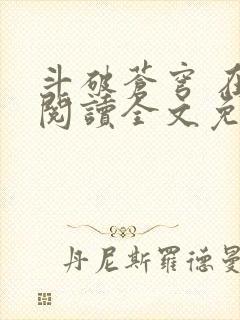 斗破蒼穹
閱讀全文免
丹尼斯羅德曼